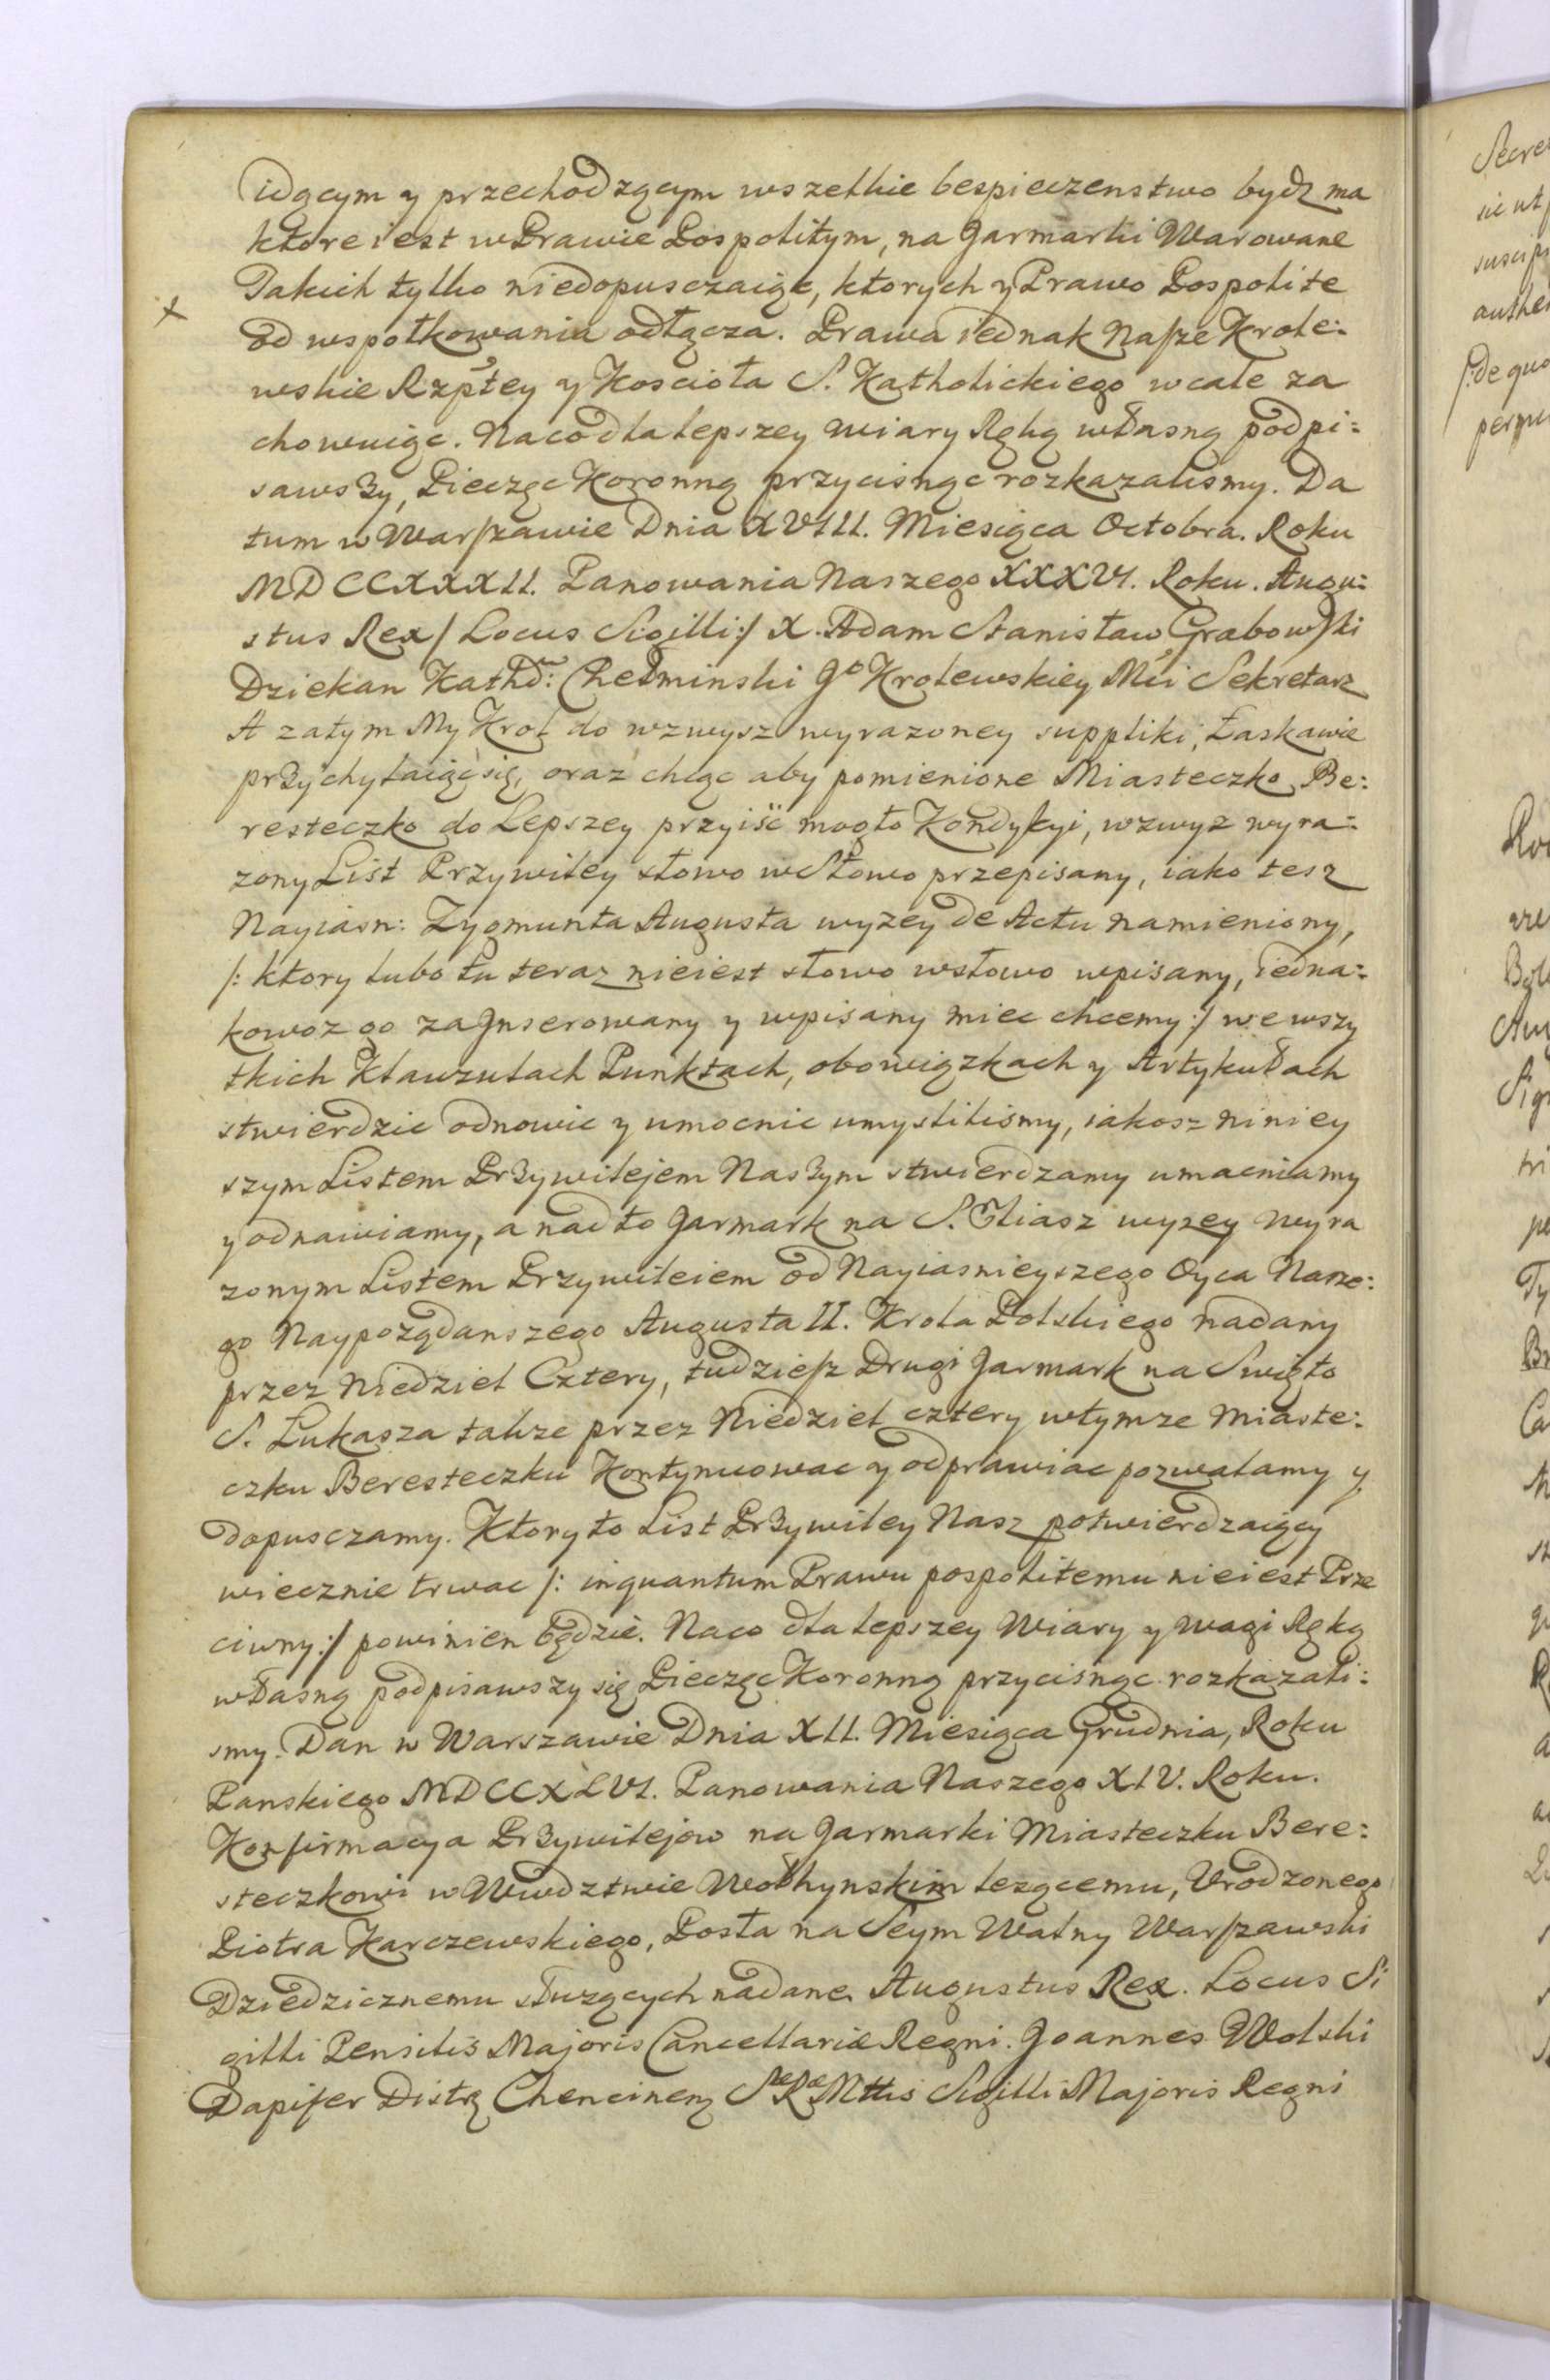 idącym y przechodzącym wszelkie bespieczenstwo bydz ma
ktore iest w Prawie Pospolitym, na Jarmarki Warowane
Takich tylko niedopusczaiąc, ktorych y Prawo Pospolite
od wspołkowania odłącza. Prawa iednak Nasze Krole:
wskie Rzptey y Koscioła S. Katholickiego wcale za
chowuiąc. Naco dla lepszey wiary Ręką własną podpi:
sawszy, Pieczęc Koronną przycisnąc rozkazalismy. Da
tum w Warszawie Dnia XVIII. Miesiąca Octobra. Roku
MDCCXXXII. Panowania Naszego XXXVI. Roku. Augu:
stus Rex /Locus Sigilli:/ X. Adam Stanisław Grabowski
Dziekan Kathd: Chełminski Jo Krolewskiey Mci Sekretarz
A zatym My Krol do wzwysz wyrazoney suppliki, Łaskawie
przychylaiąc się, oraz chcąc aby pomienione Miasteczko Be:
resteczko do Lepszey przyiść mogło Kondycyi, wzwyz wyra:
zony List Przywiley słowo w słowo przepisany, iako tesz
Nayiasn: Zygmunta Augusta wyzey de Actu namieniony,
/: ktory lubo tu teraz nieiest słowo wsłowo wpisany, iedna:
kowoz go zaJnserowany y wpisany miec chcemy :/ we wszy
tkich Klawzulach Punktach, obowiązkach y Artykułach
stwierdzic odnowic y umocnic umyslilismy, iakosz niniey
szym Listem Przywilejem Naszym stwierdzamy umacniamy
y odnawiamy, a nadto Jarmark na S. Eliasz wyzey wyra
zonym Listem Przywileiem od Nayiasnieyszego Oyca Nasze:
go Naypoządanszego Augusta II. Krola Polskiego nadany
przez Niedziel Cztery, tudziesz Drugi Jarmark na Swięto
S. Lukasza takze przez Niedziel cztery wtymze Miaste:
czku Beresteczku Kontynuowac y odprawiac pozwalamy y
dopusczamy. Ktory to List Przywiley Nasz potwierdzaiący
wiecznie trwac /: inquantum Prawu pospolitemu nieiest Prze
ciwny :/ powinien będzie. Naco dla lepszey Wiary y wagi Ręką
własną podpisawszy się Pieczęc Koronną przycisnąc rozkazali:
smy. Dan w Warszawie Dnia XII. Miesiąca Grudnia, Roku
Panskiego MDCCXLVI. Panowania Naszego XIV. Roku.
Konfirmacya Przywilejow na Jarmarki Miasteczku Bere:
steczkowi w Wwdztwie Wołhynskim lezącemu, Urodzonego
Piotra Karczewskiego, Posła na Seym Walny Warszawski
Dziedzicznemu słuzących nadane. Augustus Rex. Locus Si
gilli Pensilis Majoris Cancellariæ Regni. Joannes Wolski
Dapifer Distr Chencinen SæRæMttis Sigilli Majoris Regni